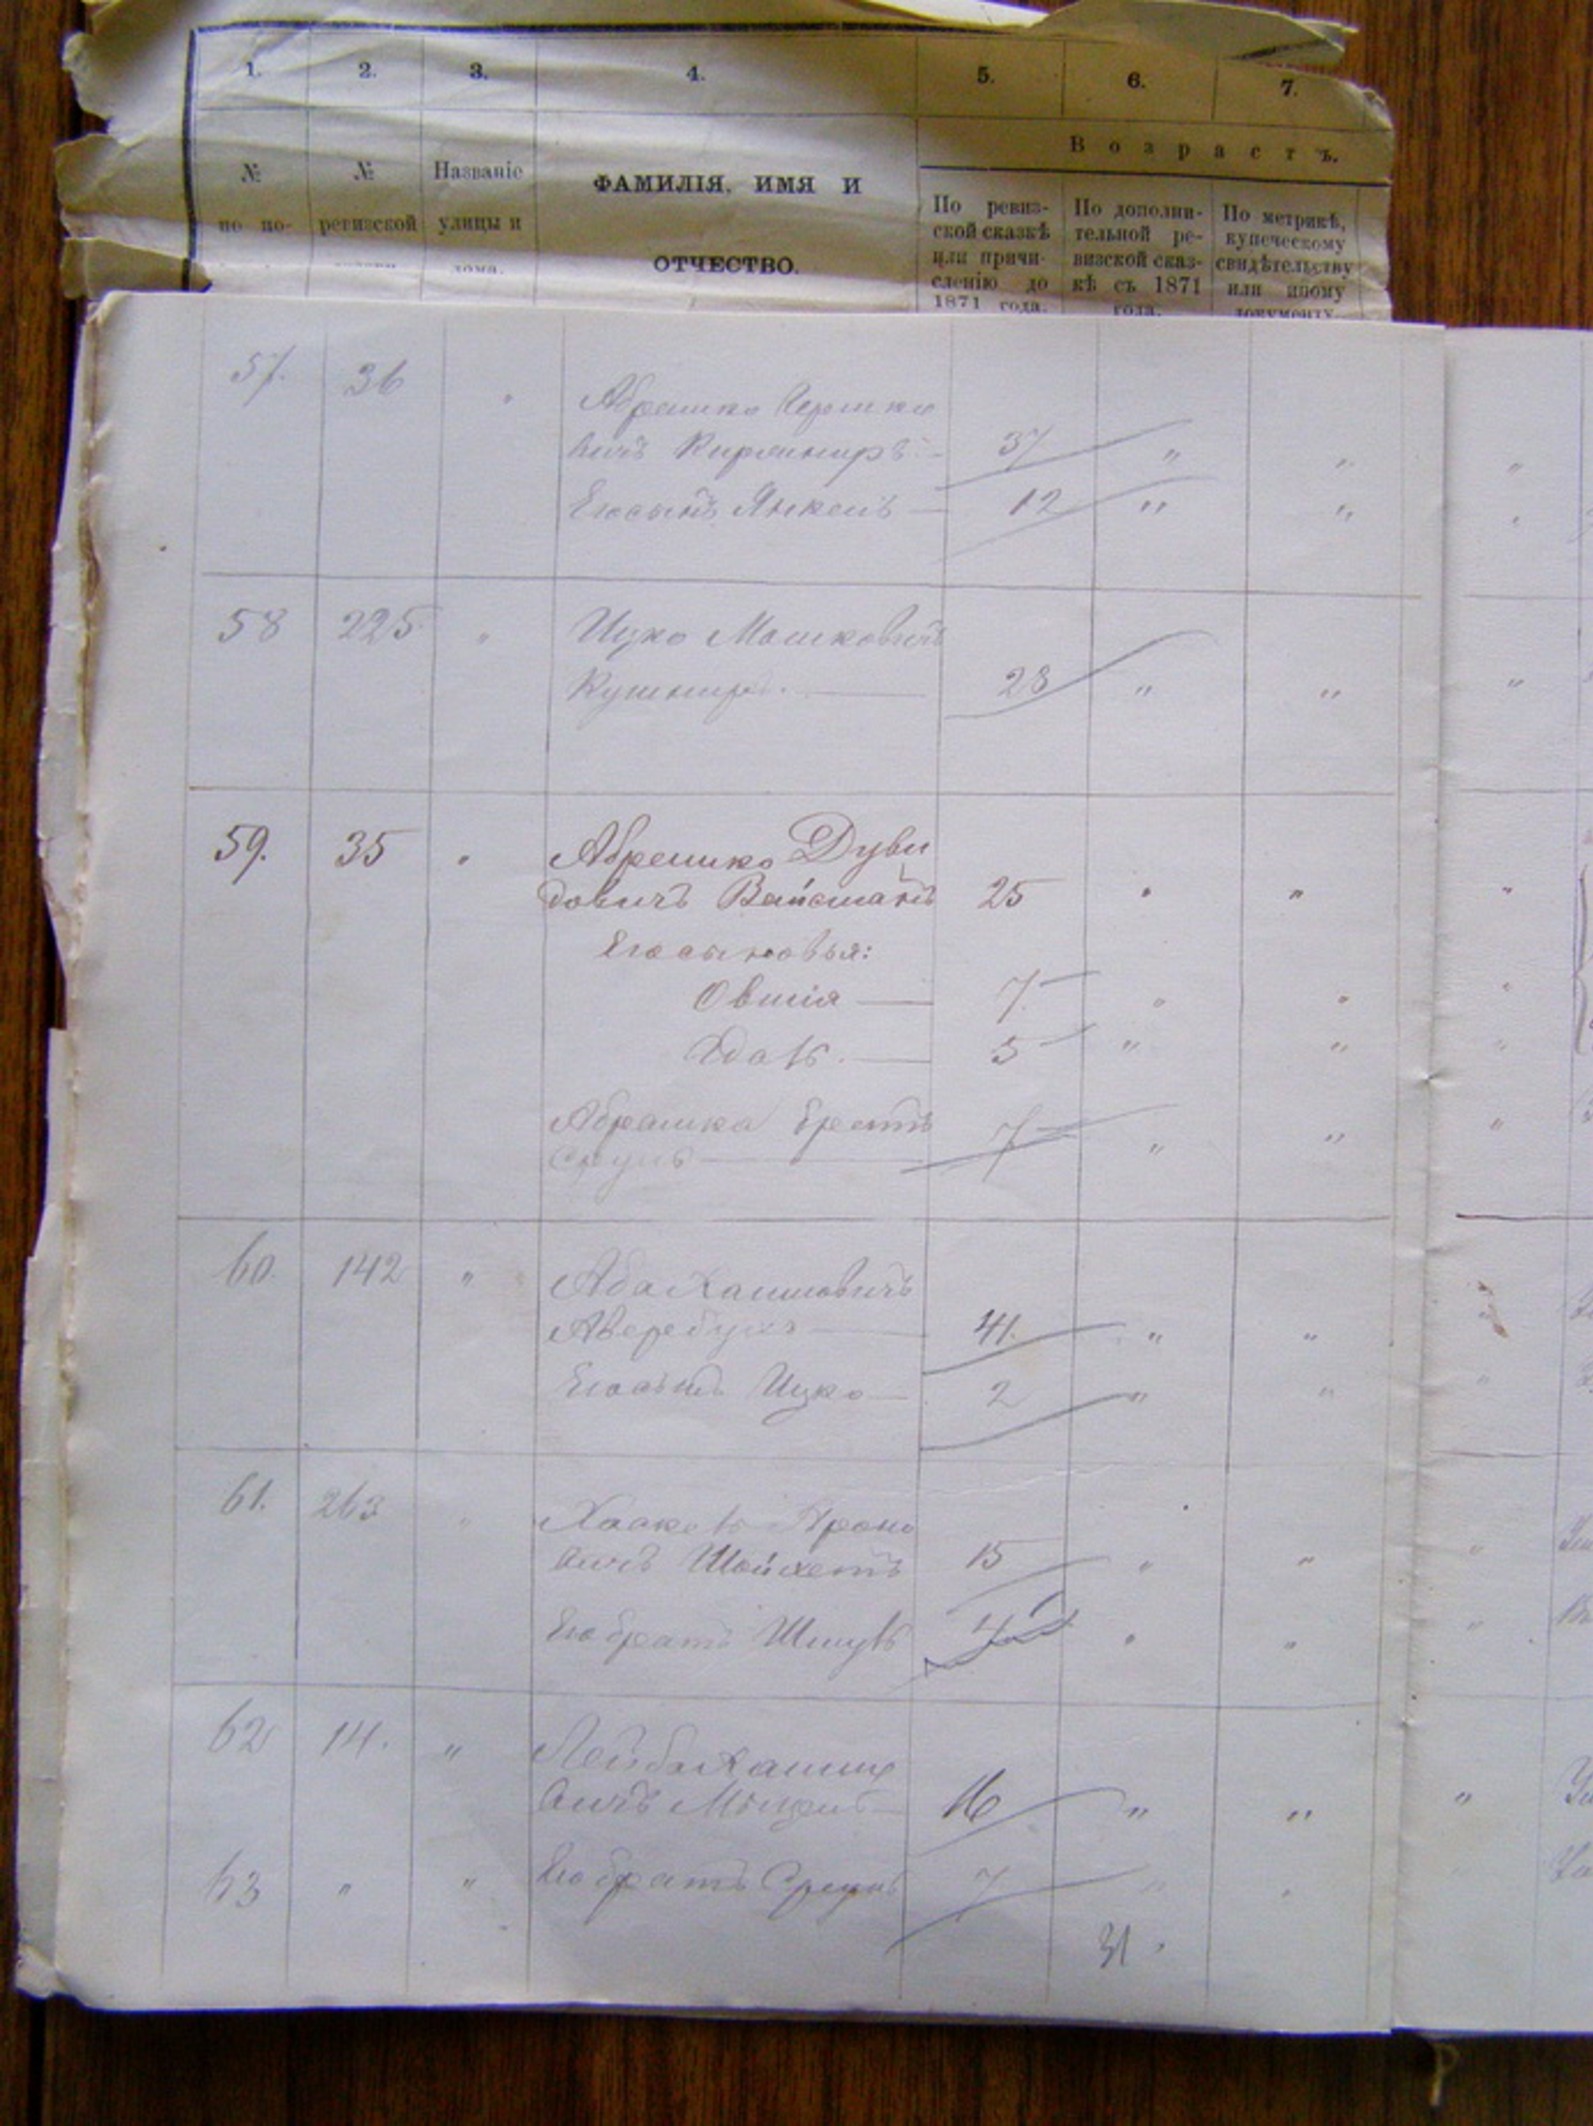 1. 2. 3. 4. 5. 6. 7.
Возрастъ.
№ № Названіе ФАМИЛІЯ, ИМЯ И
по по- ревизской улицы и
дома. ОТЧЕСТВО.
По ревиз- По дополни- По метрикѣ,
ской сказкѣ тельной ре- купеческому
или причи- визской сказ- свидѣтельству
сленію до кѣ съ 1871 или иному
1871 года. года. документу.
57. 36 " Абрашко Гершко
вичъ Киржнеръ 37 " " "
Его сынъ Янкель 12 " " "
58 225 " Ицко Мошковичъ
Кушниръ 28 " " "
59. 35 " Абрашко Дуви
довичъ Вайсманъ 25 " " "
Его сыновья:
Овшія 7. " " "
5 " " "
Абрашка братъ
Сруль 7 " " "
60. 142 " Аба Хаимовичъ
Авербухъ 41. " "
Его сынъ Ицко 2 " " "
61. 263 " Хаскель Ароно
вичъ Шойхетъ 15 " " "
Его братъ Шмуль 4 " " "
62 14. " Лейба Хаимо
вичъ 16 " " "
63 " " Его братъ Сруль 7 " "
31